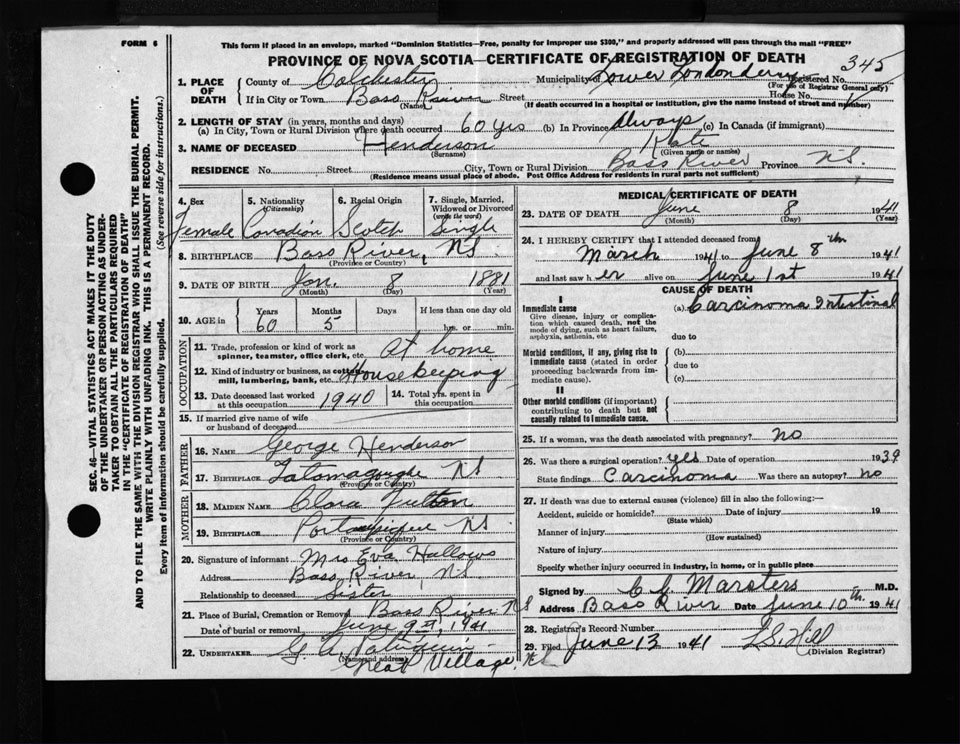 FORM 6
This form if placed in an envelope, marked "Dominion Statistics—Free, penalty for improper use $300," and properly addressed will pass through the mail "FREE"
PROVINCE OF NOVA SCOTIA—CERTIFICATE OF REGISTRATION OF DEATH 345
1. PLACE OF DEATH County of Colchester Municipality of Lower Londonderry Registered No.
(For use of Registrar General only)
If in City or Town Bass River Street House No.
(Name) (If death occurred in a hospital or institution, give the name instead of street and number)
2. LENGTH OF STAY (in years, months and days)
(a) In City, Town or Rural Division where death occurred 60 yrs (b) In Province Always (c) In Canada (if immigrant)
3. NAME OF DECEASED Henderson Kate
(Surname) (Given name or names)
RESIDENCE No. Street City, Town or Rural Division Bass River Province N.S.
(Residence means usual place of abode. Post Office Address for residents in rural parts not sufficient)
4. Sex 5. Nationality (Citizenship) 6. Racial Origin 7. Single, Married, Widowed or Divorced (write the word)
Female Canadian Scotch Single
8. BIRTHPLACE Bass River, N.S.
(Province or Country)
9. DATE OF BIRTH Jan. 8 1881
(Month) (Day) (Year)
10. AGE in Years Months Days If less than one day
60 5 hrs. or min.
OCCUPATION
11. Trade, profession or kind of work as spinner, teamster, office clerk, etc. At home
12. Kind of industry or business, as cotton mill, lumbering, bank, etc. Housekeeping
13. Date deceased last worked at this occupation 1940 14. Total yrs. spent in this occupation
15. If married give name of wife or husband of deceased
FATHER
16. NAME George Henderson
17. BIRTHPLACE Tatamagouche N.S.
(Province or Country)
MOTHER
18. MAIDEN NAME Clara Fulton
19. BIRTHPLACE Portaupique N.S.
(Province or Country)
20. Signature of informant Mrs Eva Hallows
Address Bass River, N.S.
Relationship to deceased Sister
21. Place of Burial, Cremation or Removal Bass River N.S
Date of burial or removal June 9th, 1941
22. UNDERTAKER G. A.
(Name and address) Great Village, N.S.
MEDICAL CERTIFICATE OF DEATH
23. DATE OF DEATH June 8 1941
(Month) (Day) (Year)
24. I HEREBY CERTIFY that I attended deceased from
March 1941 to June 8th 1941
and last saw h er alive on June 1st 1941
CAUSE OF DEATH
I
Immediate cause (a) Carcinoma Intestinal
Give disease, injury or complication which caused death, not the mode of dying, such as heart failure, asphyxia, asthenia, etc due to
Morbid conditions, if any, giving rise to immediate cause (stated in order proceeding backwards from immediate cause). (b)
due to
(c)
II
Other morbid conditions (if important) contributing to death but not causally related to immediate cause.
25. If a woman, was the death associated with pregnancy? no
26. Was there a surgical operation? yes Date of operation 1939
State findings Carcinoma Was there an autopsy? no
27. If death was due to external causes (violence) fill in also the following:—
Accident, suicide or homicide? Date of injury 19
(State which)
Manner of injury
(How sustained)
Nature of injury
Specify whether injury occurred in industry, in home, or in public place
Signed by C. L. Marsters M.D.
Address Bass River Date June 10th 1941
28. Registrar's Record Number
29. Filed June 13 1941 L.S. Hill
(Division Registrar)
SEC. 46—VITAL STATISTICS ACT MAKES IT THE DUTY
OF THE UNDERTAKER OR PERSON ACTING AS UNDER-
TAKER TO OBTAIN ALL THE PARTICULARS REQUIRED
IN THE "CERTIFICATE OF REGISTRATION OF DEATH"
AND TO FILE THE SAME WITH THE DIVISION REGISTRAR WHO SHALL ISSUE THE BURIAL PERMIT.
WRITE PLAINLY WITH UNFADING INK. THIS IS A PERMANENT RECORD.
Every item of information should be carefully supplied. (See reverse side for instructions.)